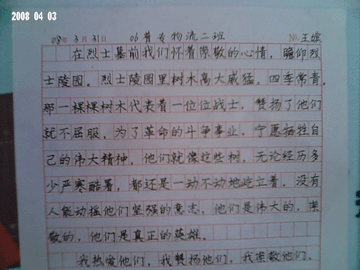 2008 04 03
08年3月31 06普专物流二班 王斌
在烈士墓前我们怀着崇敬的心情，瞻仰烈
士陵园，烈士陵园里树木高大威猛，四季常青，
那一棵棵树木代表着一位位战士，赞扬了他们
就不屈服，为了革命的斗争事业，宁愿牺牲自
己的伟大精神，他们就像这些树，无论经历多
少严寒酷暑，都还是一动不动地屹立着，没有
人能动摇他们坚强的意志，他们是伟大的，崇
敬的，他们是真正的英雄。
我热爱他们，我赞扬他们，我崇敬他们。